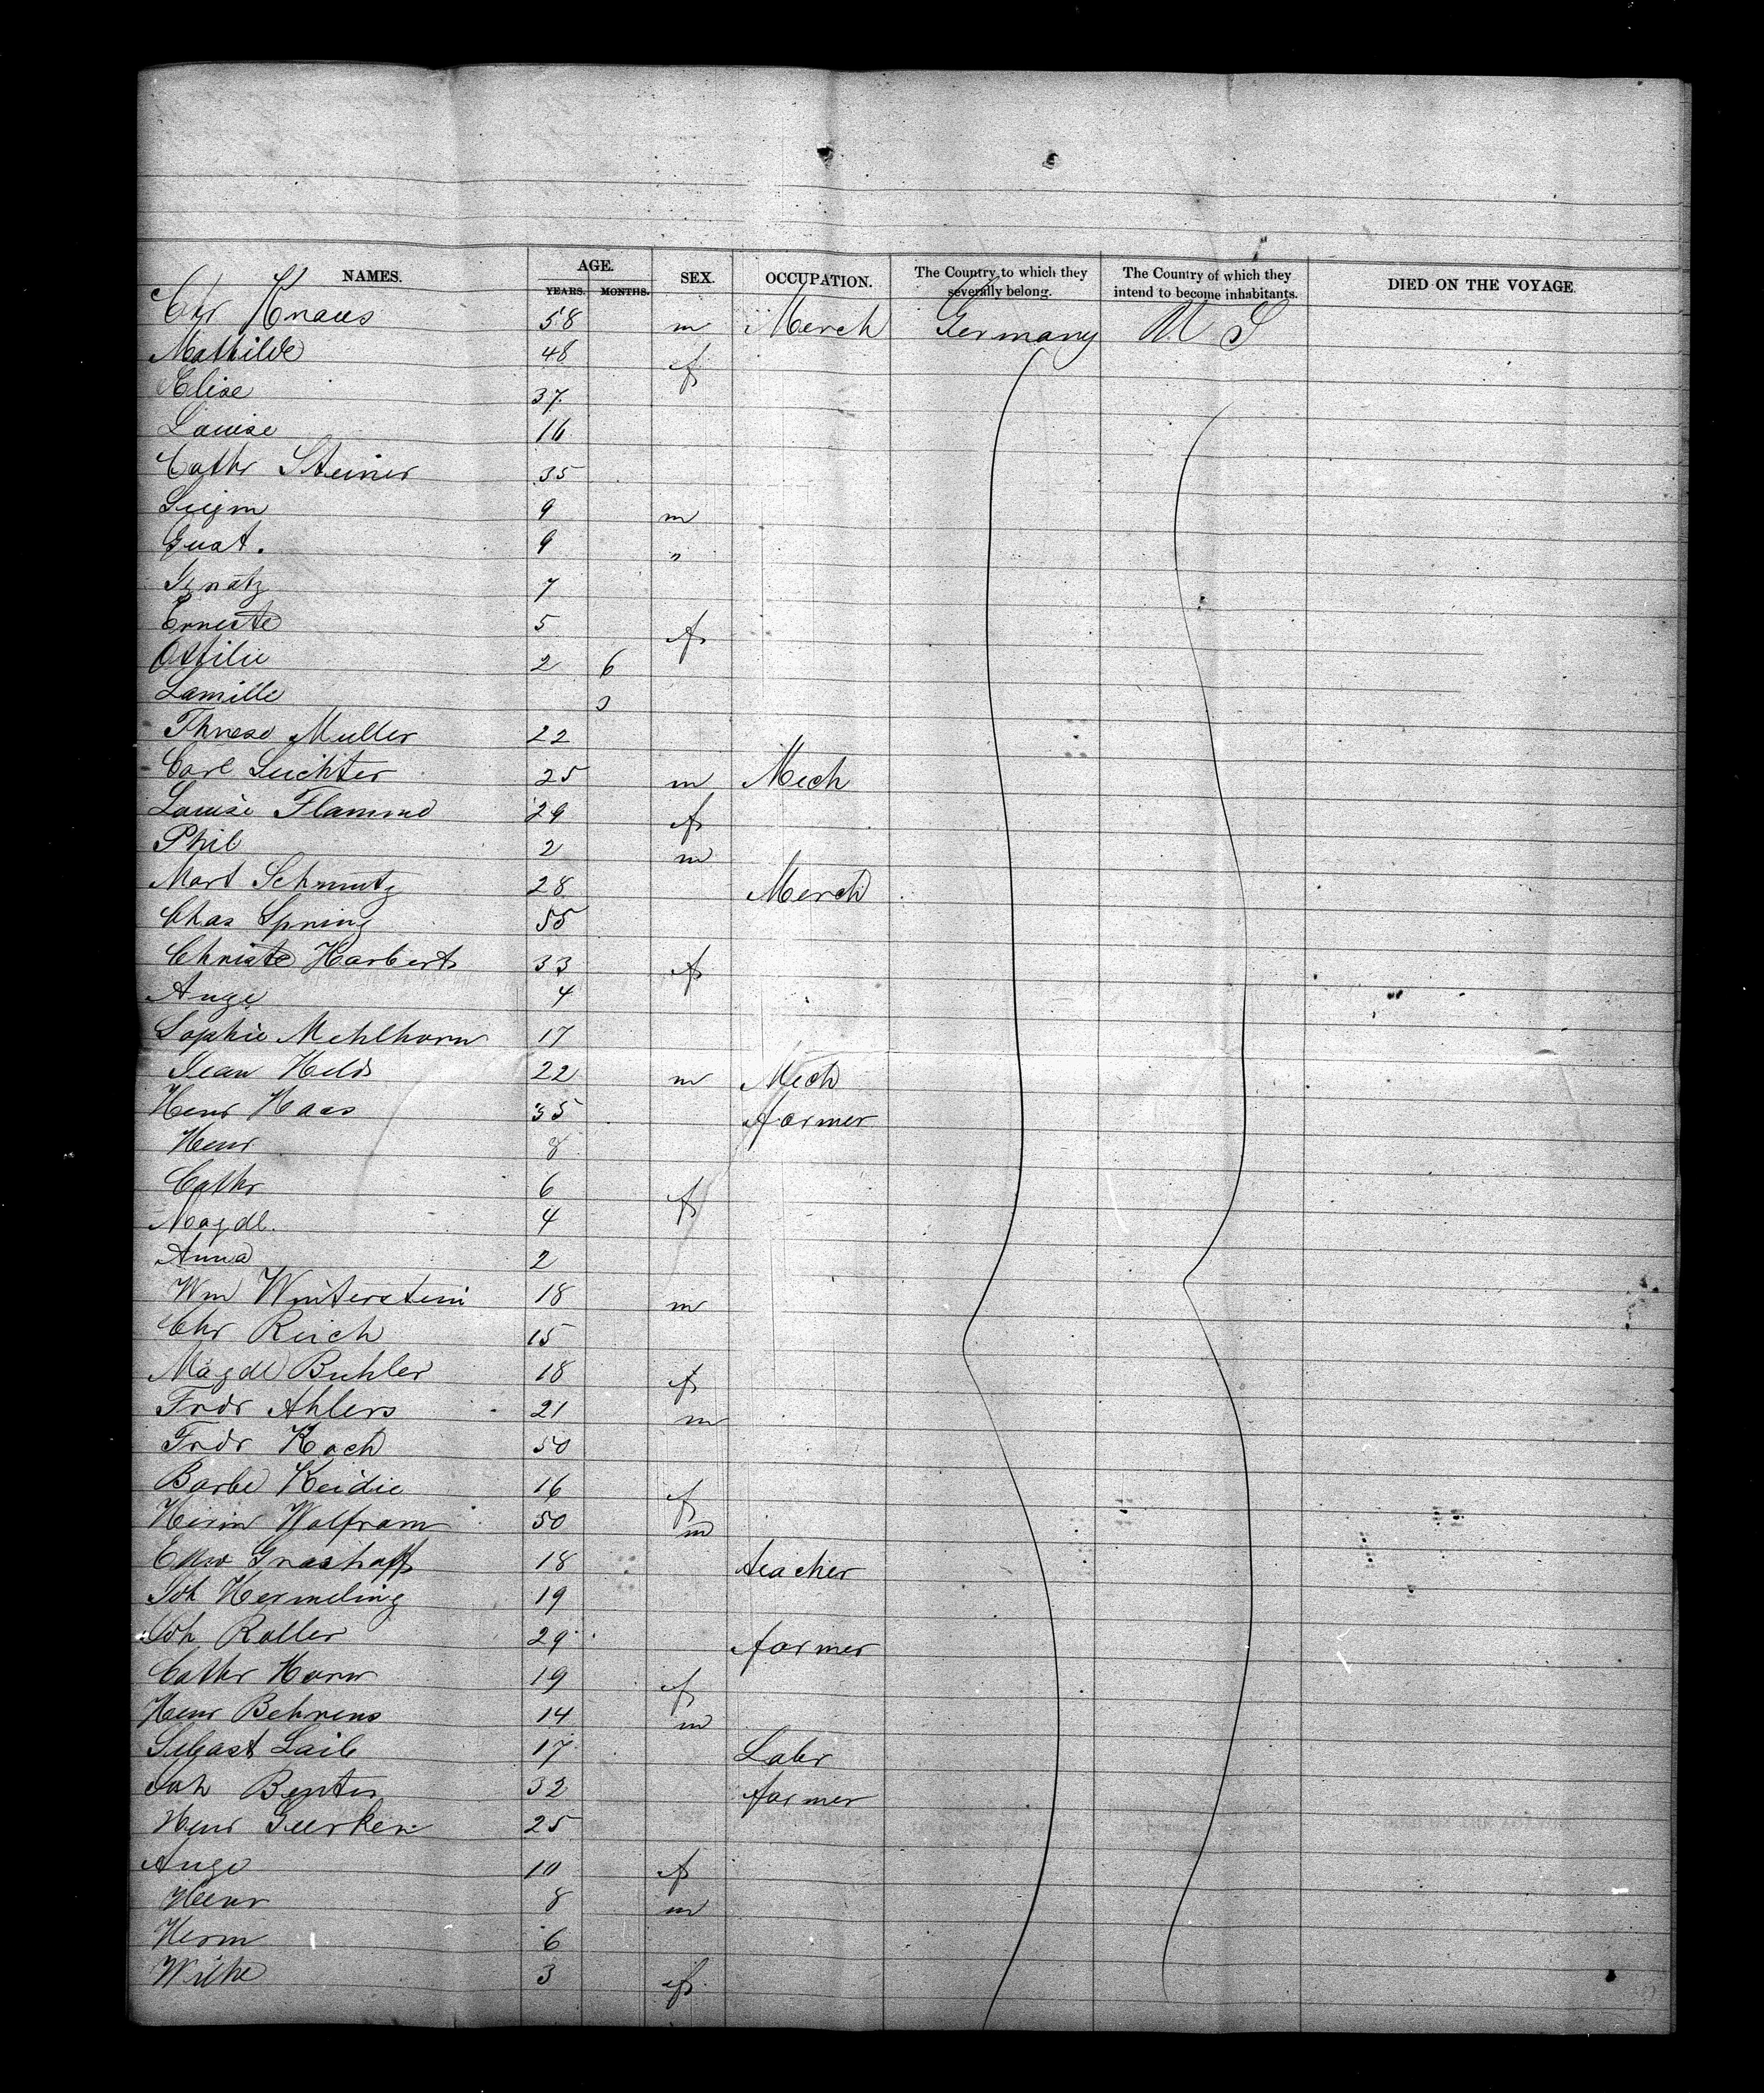 NAMES. AGE. YEARS. MONTHS. SEX. OCCUPATION. The Country to which they severally belong. The Country of which they intend to become inhabitants. DIED ON THE VOYAGE.
Chr Knaus 58 m Merch Germany U S
Mathilde 48 f
Elise 37
Louise 16
Cathr Steiner 35
9 m
Gust. 9 "
Ignatz 7
Erneste 5 f
Ottilie 2 6
Camille 3
Therese Muller 22
Carl Leichter 25 m Mech
Louise Flamme 29 f
Phil 2 m
Mart Schmutz 28 Merch
Chas Spring 55
Christe Harbert 33 f
Auge 4
Sophie Mehlhorn 17
Jean Held 22 m Mech
Henr Haas 35 farmer
Henr 8
Cathr 6 f
Magdl. 4
Anna 2
Wm Winterstein 18 m
Chr Reich 15
Magdl Buhler 18 f
Fridr Ahlers 21 m
Fridr Koch 50
Barbe Keidie 16 f
Herm Wolfram 50 m
Edw Grashoff 18 teacher
Joh Hermeling 19
Joh Roller 29 farmer
Cathr Horn 19 f
Henr Behrens 14 m
Sebast Laib 17 Labr
Joh Benter 32 farmer
Henr Geerken 25
Auge 10 f
Henr 8 m
Herm 6
Wilhe 3 f